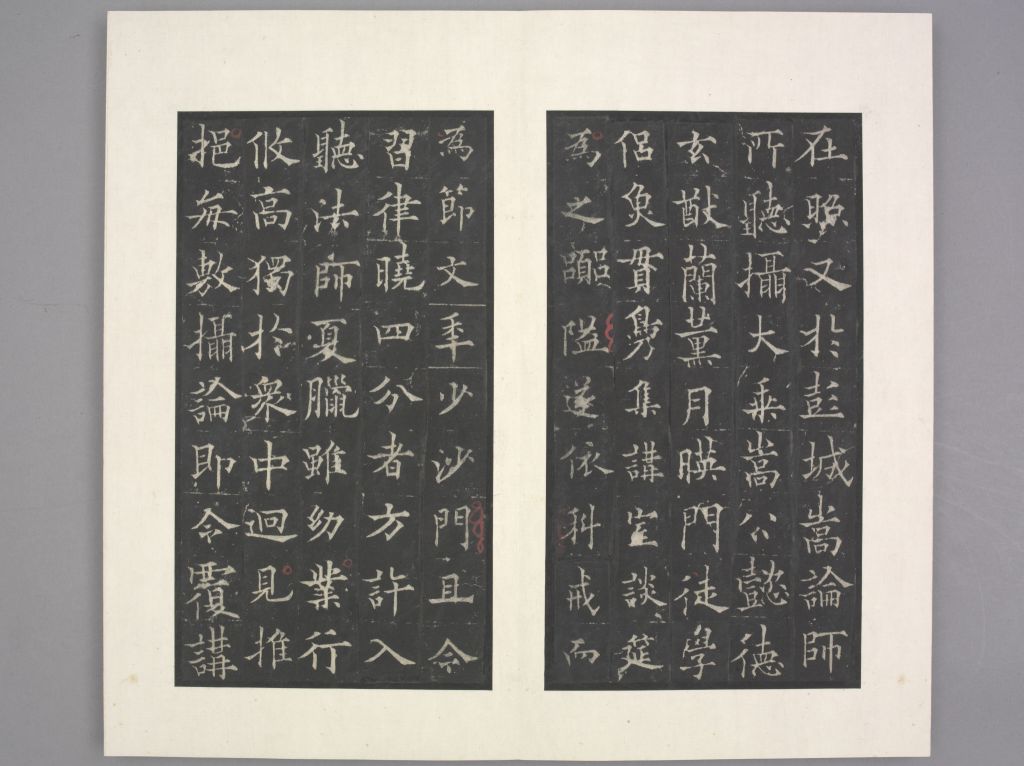 在照又於彭城嵩論師
所聽攝大乘嵩公懿德
玄猷蘭薰月暎門徒學
侶魚貫鳧集講室談筵
為之嚻隘遂依科戒而
為節文年少沙門且令
習律曉四分者方許入
聽法師夏臘雖幼業行
攸高獨於衆中迥見推
挹每敷攝論即令覆講